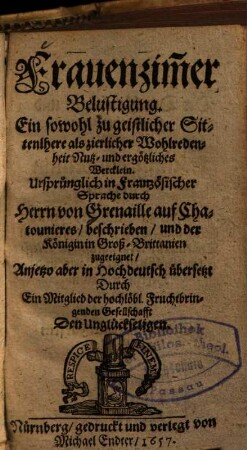 Frauenzim̃er
Belustigung.
Ein sowohl zu geistlicher Sit-
tenlhere als zierlicher Wohlreden-
heit Nutz- und ergötzliches
Wercklein.
Ursprünglich in Frantzösischer
Sprache durch
Herrn von Grenaille auf Cha-
tounieres / beschrieben / und der
Königin in Groß-Brittanien
zugeeignet /
Anjetzo aber in Hochdeutsch übersetzt
Durch
Ein Mitglied der hochlöbl. Fruchtbrin-
genden Gesellschafft
Den Unglückseligen.
RESPICE FINEM
Bibliothek
Passau
Nürnberg / gedruckt und verlegt von
Michael Endter / 1657.